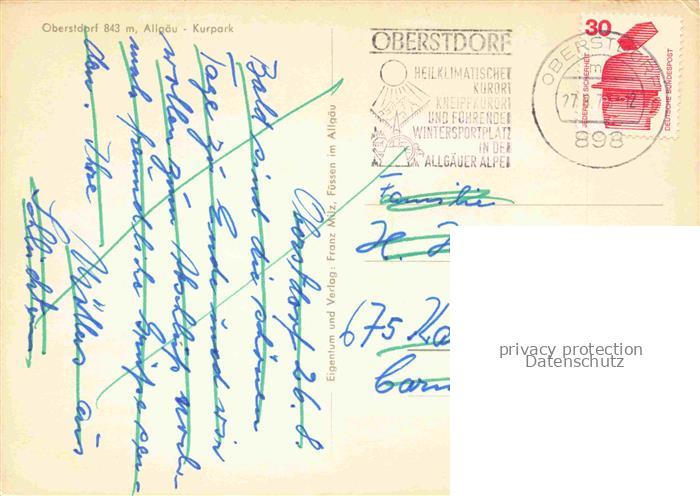 Oberstdorf 843 m, Allgäu - Kurpark
OBERSTDORF
HEILKLIMATISCHER
KURORT
KNEIPPKURORT
UND FÜHRENDER
WINTERSPORTPLATZ
IN DEN
ALLGÄUER ALPEN
OBERSTDORF
27.
898
30
JEDERZEIT SICHERHEIT
DEUTSCHE BUNDESPOST
Eigentum und Verlag: Franz Milz, Füssen im Allgäu
Oberstdorf 26.8.
Bald sind die schönen
Tage zu Ende und wir
wollen zum Abschluß noch-
mal freundliche Grüße sen-
den. Ihre
Müllers aus
Familie
H.
675 Ka
privacy protection
Datenschutz